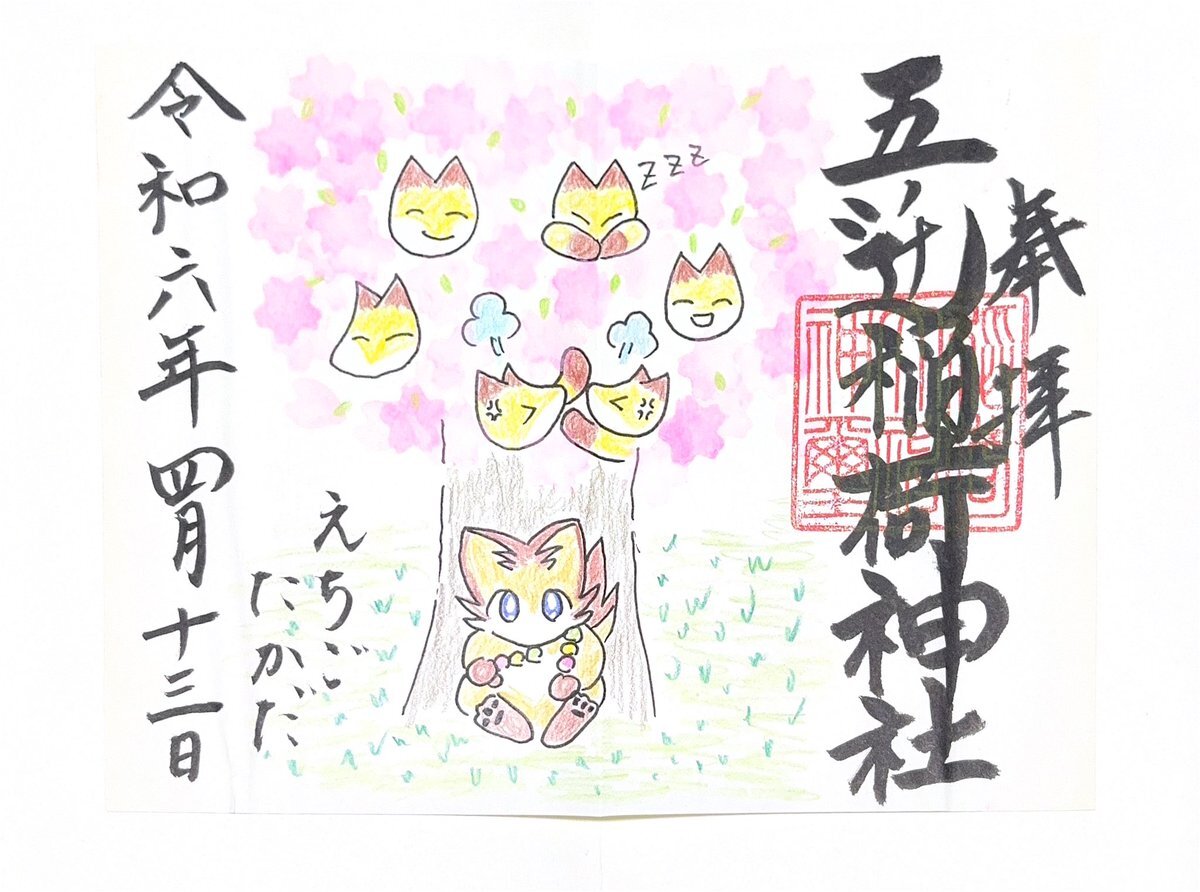 奉拝
五 稲荷神社
zzz
えちご
たかだ
令和六年四月十三日